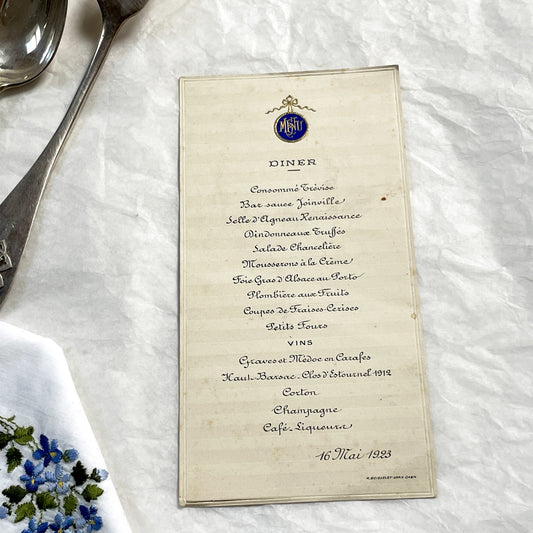 MENU
DINER
Consommé Trévise
Bar sauce Joinville
Selle d'Agneau Renaissance
Dindonneaux Truffés
Salade Chancelière
Mousserons à la Crème
Foie Gras d'Alsace au Porto
Plombière aux Fruits
Coupes de Fraises-Cerises
Petits Fours
VINS
Graves et Médoc en Carafes
Haut-Barsac-Clos d'Estournel 1912
Corton
Champagne
Café-Liqueurs
16 Mai 1923
CAEN